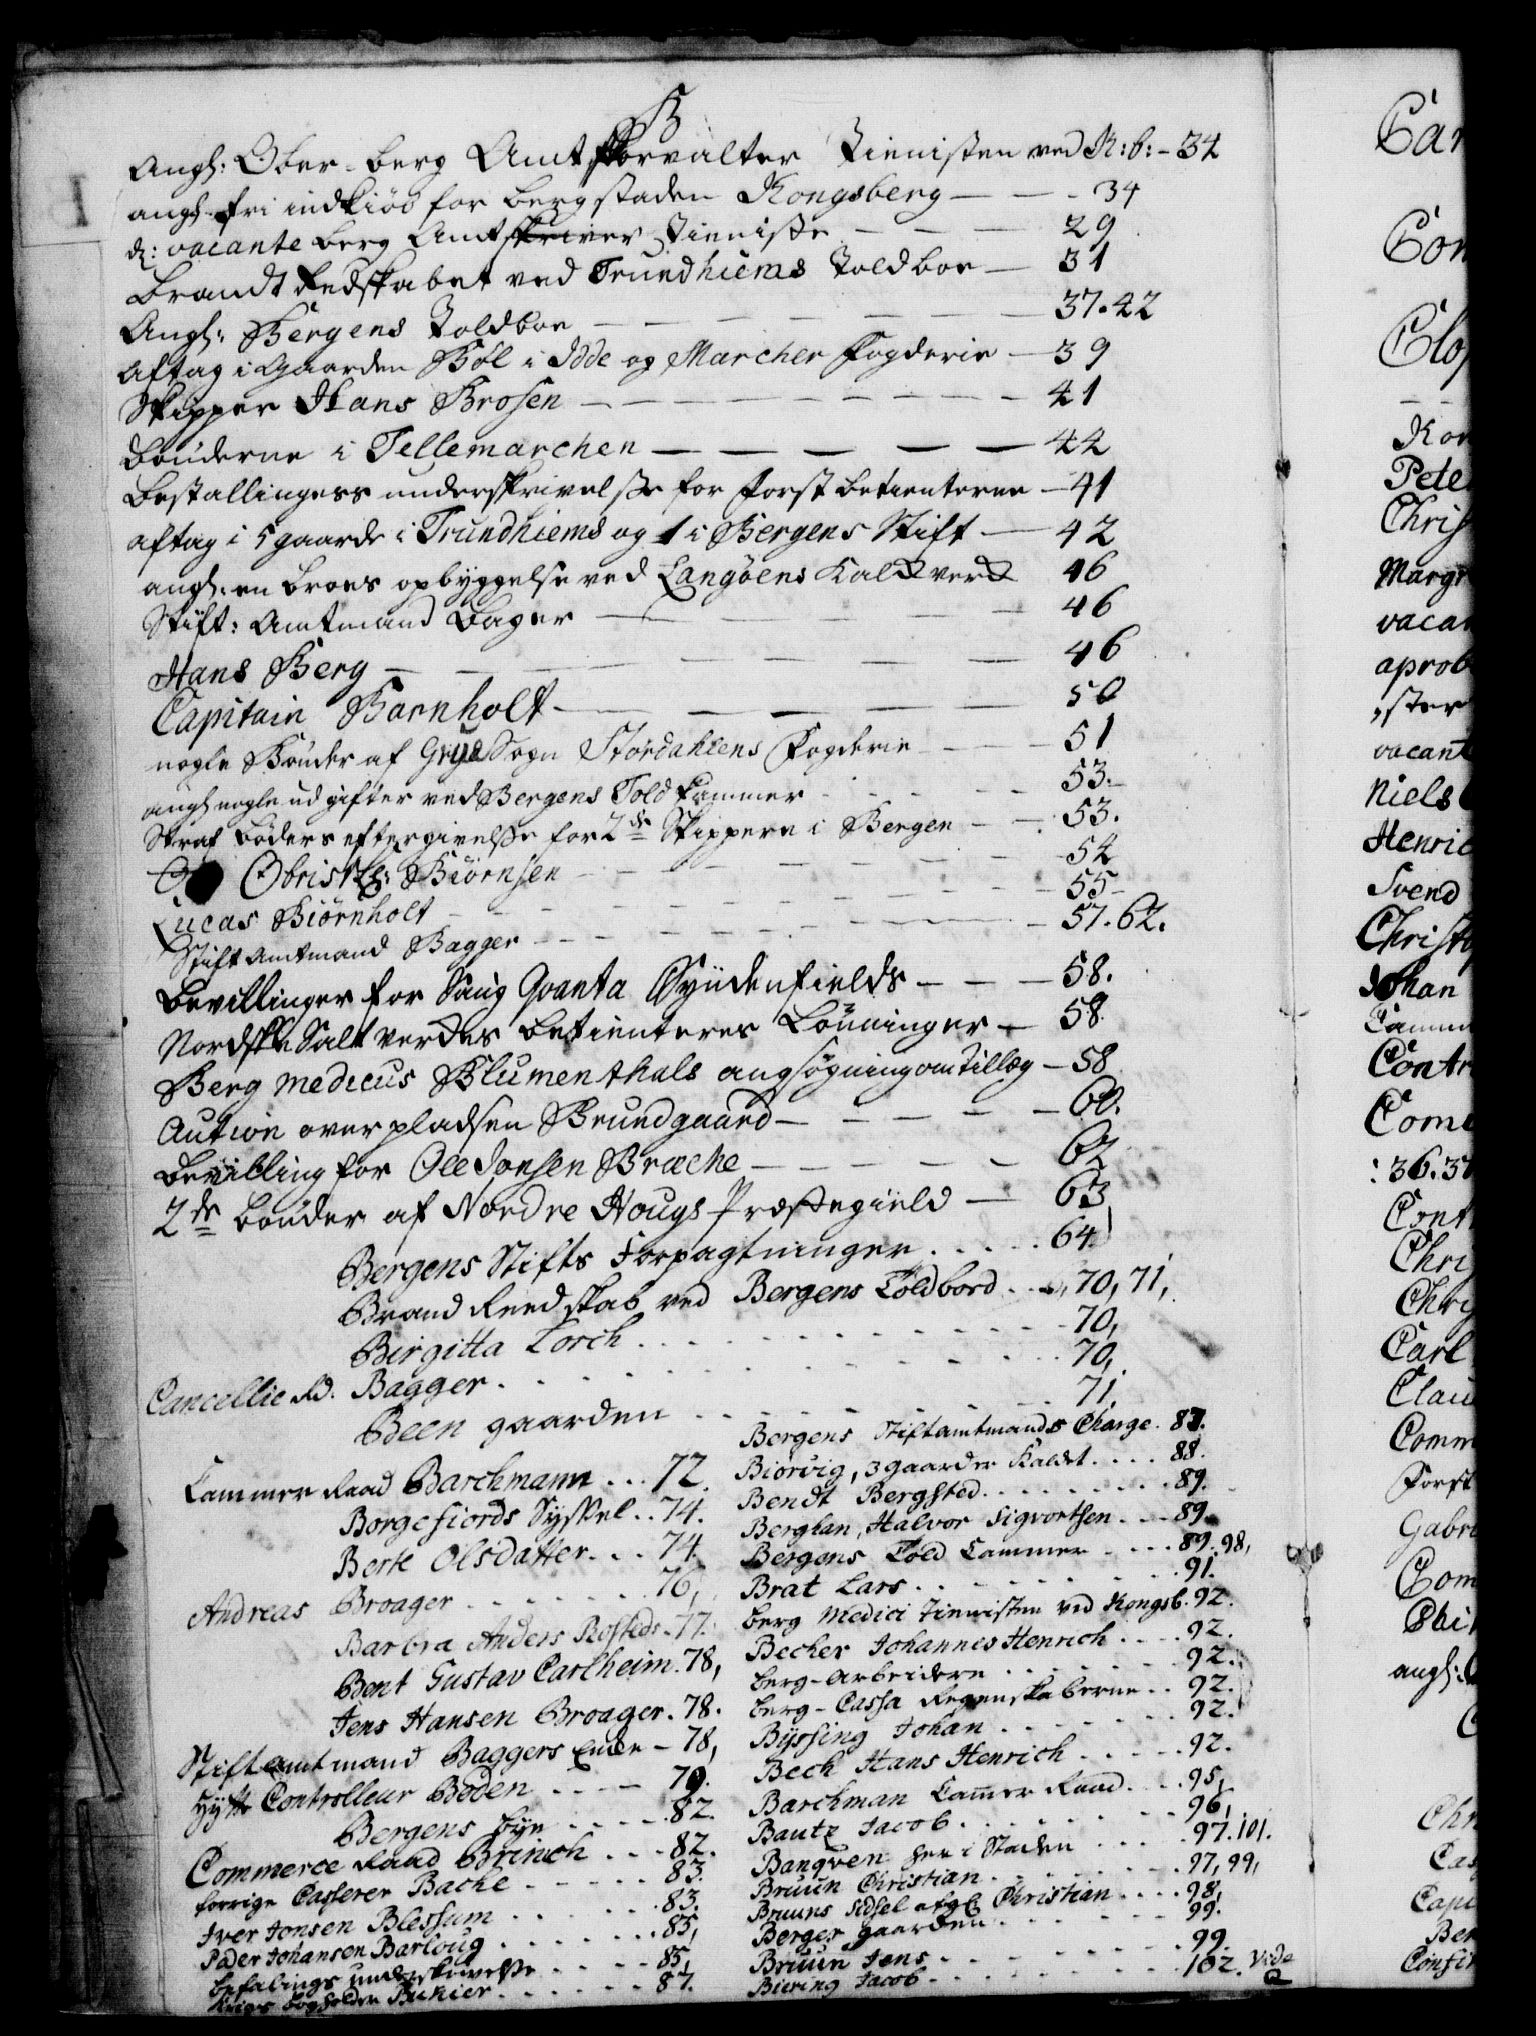 B
Angl: Ober-berg Amtsforvalter Tienisten ved K:b: - 34
angl. fri indkiöb for bergstaden Kongsberg - 34
d: vacante berg Amtskriver Tieniste - 29
Brandt Redskabet ved Trundhiems Toldboe - 31
Angl: Bergens Toldboe - 37.42
Aftag i Gaarden Böl i Idde og Marcher Fogderie - 39
Skipper Hans Brosen - 41
bönderne i Tellemarchen - 44
Bestallingers underskrivelse for Forst betienterne - 41
aftag i 5 gaarde i Trundhiems og 1 i Bergens Stift - 42
angl: en broes opbyggelse ved Langöens Kalckverck 46
Stift: Amtmand Bager - 46
Hans Berg - 46
Capitain Bornholt - 50
nogle Bönder af Sogn Stördahlens Fogderie - 51
angl nogle udgifter ved Bergens Told kammer - 53.
Straf böders eftergivelse for 2de Skippere i Bergen - 53.
Obristl: Biörnsen - 54
Lucas Biörnholt - 55
Stift Amtmand Bagger - 57.62.
Bevillinger for Saug Qvanta Syndenfields - 58.
Nordske Saltverckes betienteres Lönninger - 58
Berg medicus Blumenthals angsögning om tillæg - 58
Aution over pladsen Brundgaard - 60.
Bevilling for Ole Jonsen Bræche - 62
2de bönder af Nordre Hougs Præstegield - 63
Bergens Stifts Forpagtninger . . . . 64
Brand Reedskab ved Bergens Toldbord . . 70, 71,
Birgitta Lorch . . . 70,
Cancellie Rd. Bagger . . . 70,
Been gaarden . . . 71.
Cammer Raad Barchmann . . . 72.
Borgefiords Syssel . . 74.
Berte Olsdatter . . . 74.
Andreas Broager . . . 76,
Barbra Anders Rosteds . 77.
Bent Gustav Carlheim . 78,
Jens Hansen Broager . 78.
Stiftamtmand Baggers Enke - 78,
Controlleur Böden . . . 79.
Bergens bye . . . 82.
Commerce Raad Brinch . . . 82.
forrige Casserer Bache . . . 83.
Iver Jonsen Blessum . . . 83.
Peder Johansen Barloug . . . 85,
befalings underskrivelse . . . 85,
Krigs bogholder Bukier . . . 87.
Bergens Stiftamtmands Charge . 87.
Biörvig, 3 gaarder Kaldet . . . . 88.
Bendt Bergsted . . . 89.
Berglan, Halvor Sigvortsen . . . 89.
Bergens Told Cammer . . . 89.98,
Brat Lars . . . 91.
berg Medici Tienisten ved Kongsb. 92.
Becher Johannes Henrich . . . 92.
berg-Arbeidere . . . 92.
berg-Cassa Regenskaberne . . 92.
Byssing Johan . . . 92.
Bech Hans Henrich . . . 92.
Barchman Cammer Raad . . . 95,
Bautz Jacob . . . 96,
Banqven her i Staden . . . 97.101.
Bruun Christian . . . 97, 99,
Bruuns Sidsel afgl Christian . . . 98,
Berger gaarden . . . 99.
Bruun Jens . . . 99.
Biering Jacob . . . 102. vide
Car
Con
Clo
Kon
Pete
Chris
Margr
vacan
aprob
ster
vacant
Niels
Henric
Svend
Christo
Johan
Camm
Contr
Com
: 36.37
Cont
Chri
Chri
Carl
Clau
Comm
Forst
Gabri
Com
angl:
Chr
Cas
Capi
Ber